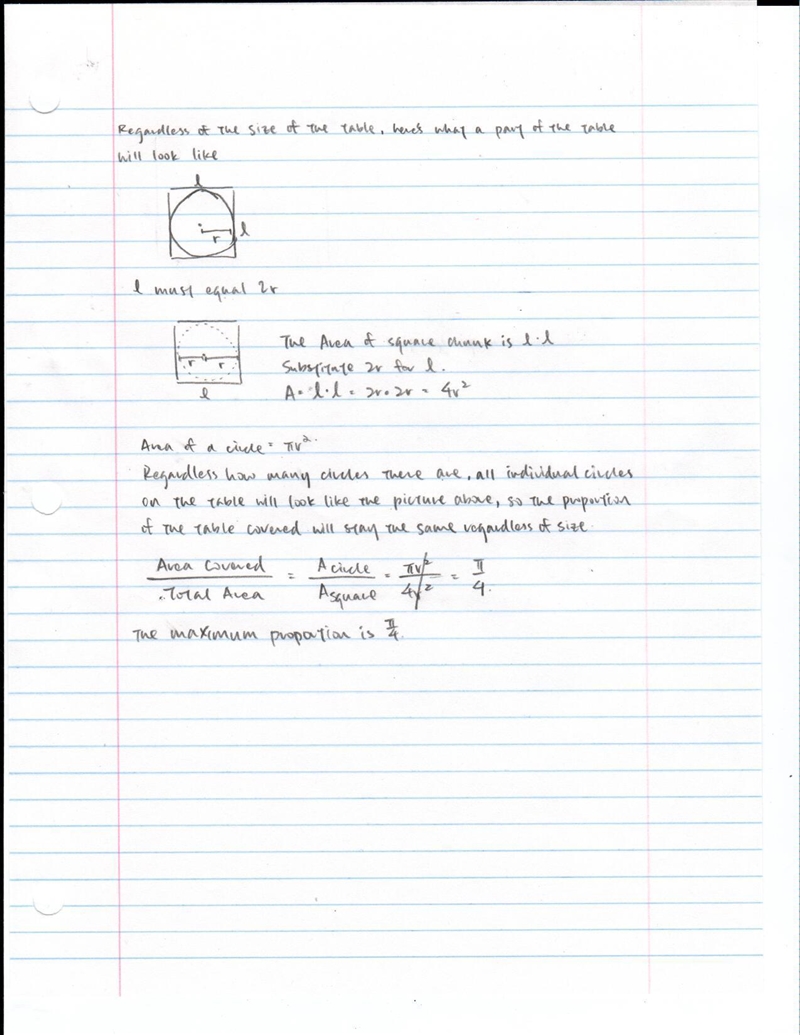 Regardless of the size of the table, here's what a part of the table
will look like
l
r
l
l must equal 2r
r r
l
The Area of square chunk is l·l
Substitute 2r for l.
A = l·l = 2r·2r = 4r²
Area of a circle = πr².
Regardless how many circles there are, all individual circles
on the table will look like the picture above, so the proportion
of the table covered will stay the same regardless of size.
Area Covered / Total Area = A circle / A square = πr² / 4r² = π / 4.
The maximum proportion is π/4.